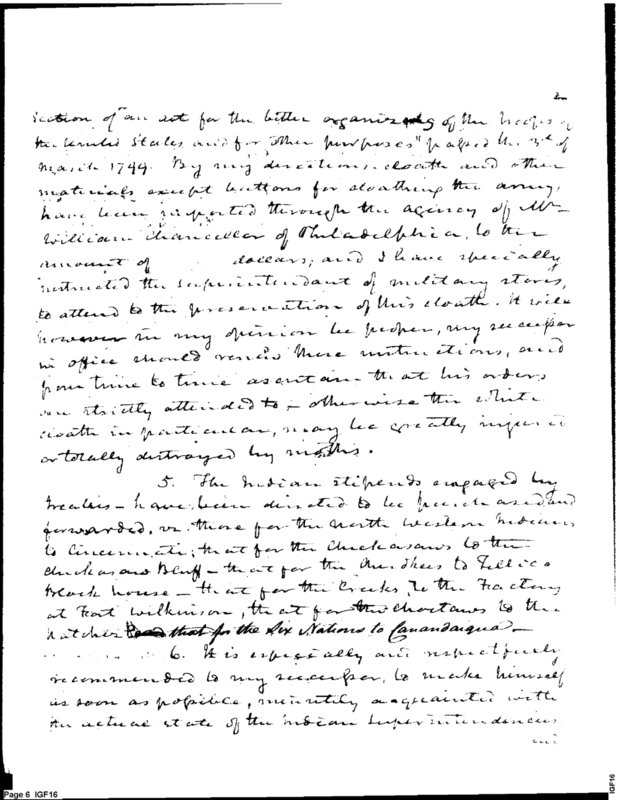 section of "an act for the better organizing of the troops of
the United States, and for other purposes" passed the 3d of
March 1799. By my directions, cloath and other
materials except buttons for cloathing the army,
have been imported through the agency of Mr
William Chancellor of Philadelphia, to the
amount of dollars; and I have specially
instructed the superintendant of military stores,
to attend to the preservation of this cloath. It will
however in my opinion be proper, my successor
in office should renew these instructions, and
from time to time ascertain that his orders
are strictly attended to – otherwise the white
cloath in particular, may be greatly injured
or totally distroyed by moths.
5. The Indian stipends engaged by
treaties – have been directed to be purchased and
forwarded, viz. those for the North Western Indians
to Cincinnati; that for the Chickasaws to the
Chickasaw Bluff – that for the Cherokees to Tellico
Block house – that for the Creeks, to the Factory
at Fort Wilkinson, that for the Choctaws to the
Natchez that for the Six Nations to Canandaigua –
6. It is especially and respectfully
recommended to my successor, to make himself
as soon as possible, minutely acquainted with
the actual state of the Indian Superintendencies
Page 6 IGF16
IGF16